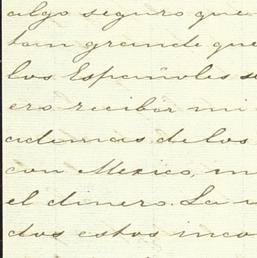 algo seguro que
tan grande que
los Españoles se
ero recibir mi
ademas de los
con Mexico, m
el dinero. La
dos estos inco